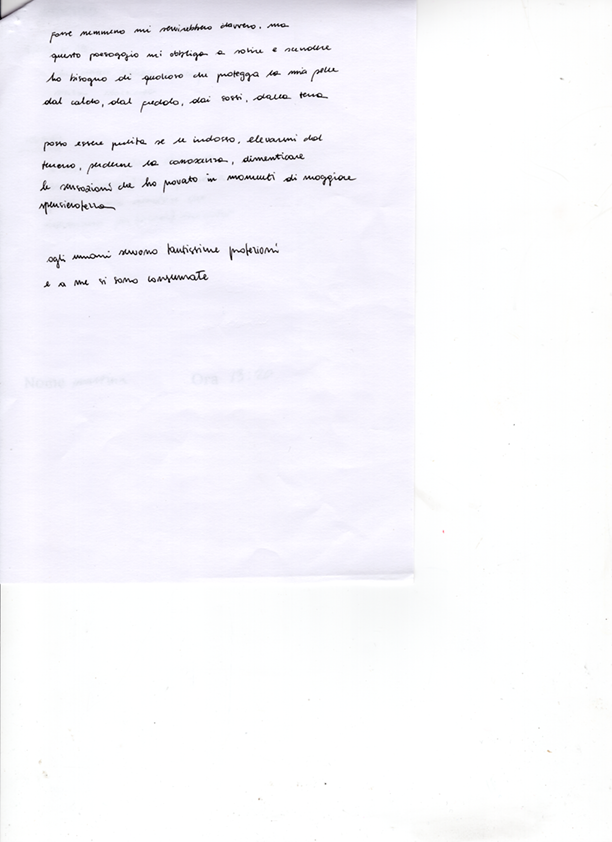 forse nemmeno mi servirebbero davvero. ma
questo paesaggio mi obbliga a salire e scendere
ho bisogno di qualcosa che protegga la mia pelle
dal caldo, dal freddo, dai sassi, dalla terra
posso essere pulita se le indosso, elevarmi dal
terreno, perderne la conoscenza, dimenticare
le sensazioni che ho provato in momenti di maggiore
spensieratezza
agli umani servono tantissime protezioni
e a me si sono consumate
Nome Ora